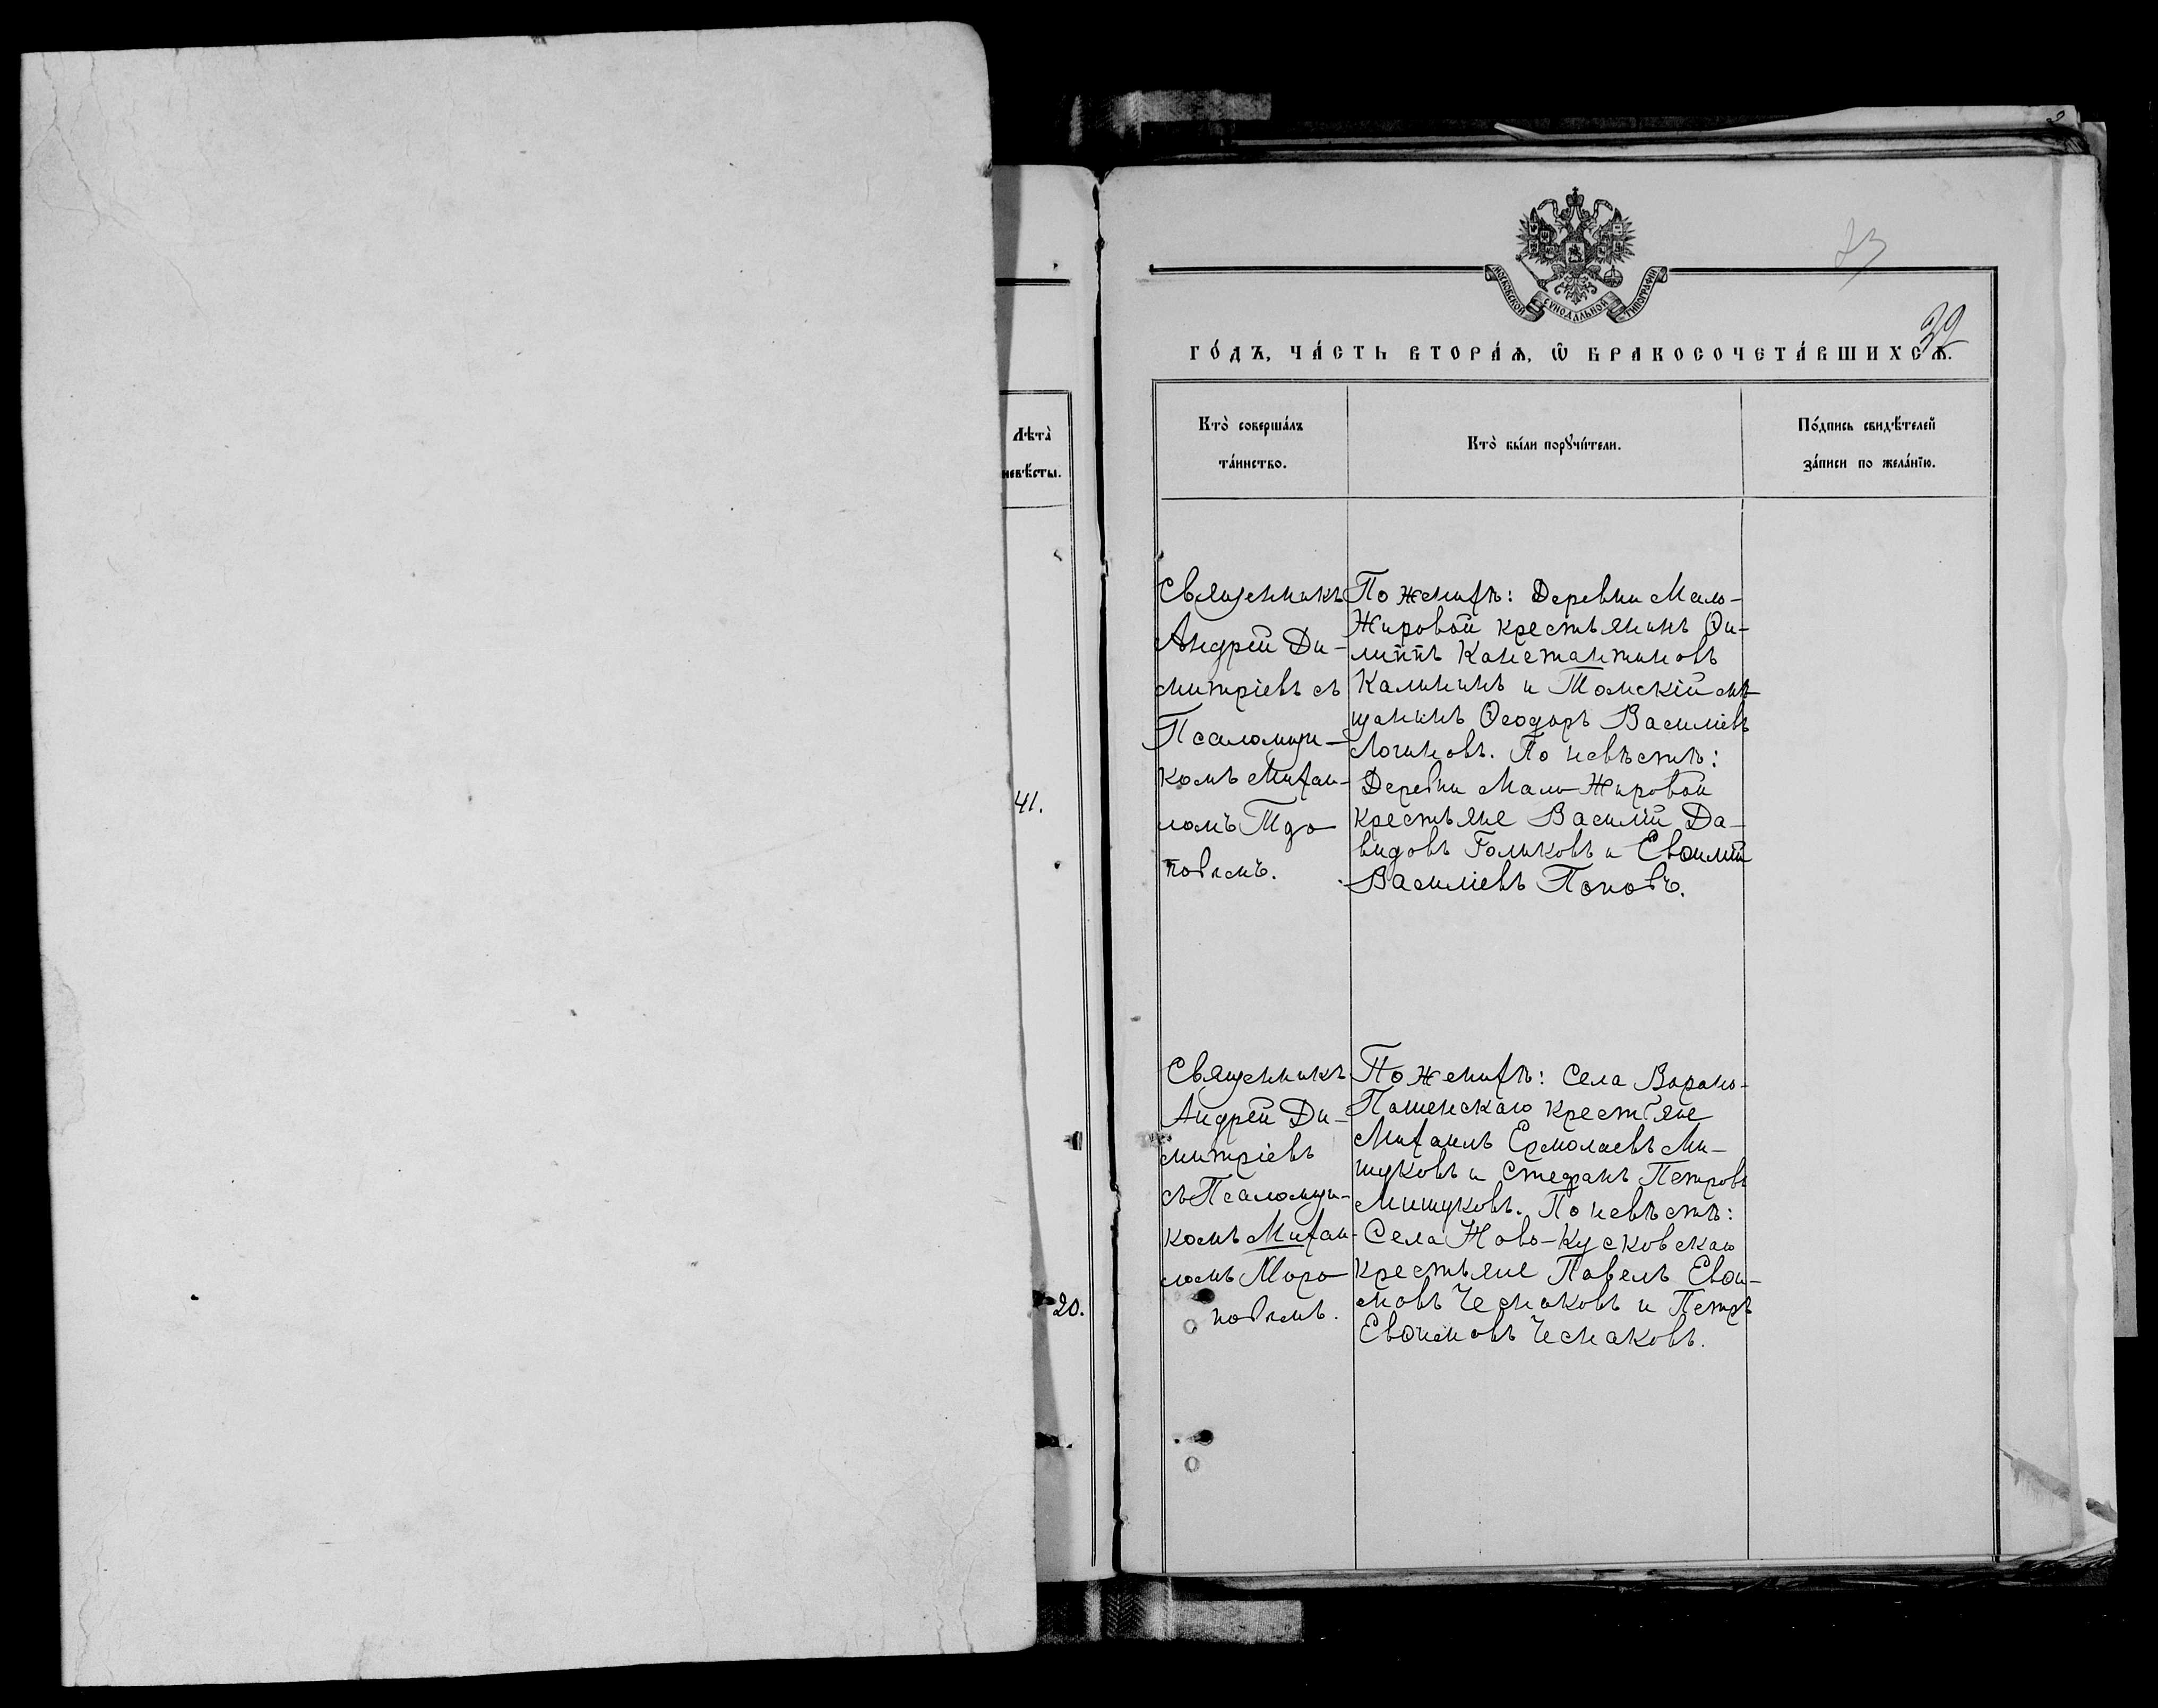 Лѣта̀
невѣ́сты.
41.
20.
МОСКОВСКОЙ СѴНОДАЛЬНОЙ ТИПОГРАФІИ
73
39
ГО́ДЪ, ЧА́СТЬ ВТОРА́Ѧ, Ѽ БРАКОСОЧЕТА́ВШИХСѦ.
Кто̀ соверша́лъ
та́инство.
Кто̀ бы́ли порꙋчи́тели.
По́дпись свидѣ́телей
за́писи по жела́нїю.
Священникъ
Андрей Ди-
митріевъ съ
Псаломщи-
комъ Михаи-
ломъ
По женихѣ: Деревни Мало-
Жировой крестьянинъ Ѳи-
липпъ Константиновъ
Калининъ и Томскій мѣ-
щанинъ Ѳеодоръ Василіевъ
Логиновъ. По невѣстѣ:
Деревни Мало-Жировой
крестьяне Василій Да-
видовъ Голиковъ и Евѳимій
Василіевъ Поповъ.
Священникъ
Андрей Ди-
митріевъ
съ Псаломщи-
комъ Михаи-
ломъ
По женихѣ: Села Вороно-
Пашенскаго крестьяне
Михаилъ Ермолаевъ Ми-
шуковъ и Стефанъ Петровъ
Мишуковъ. По невѣстѣ:
Села Ново-Кусковскаго
крестьяне Павелъ Евѳи-
мовъ Чеснаковъ и Петръ
Евѳимовъ Чеснаковъ.